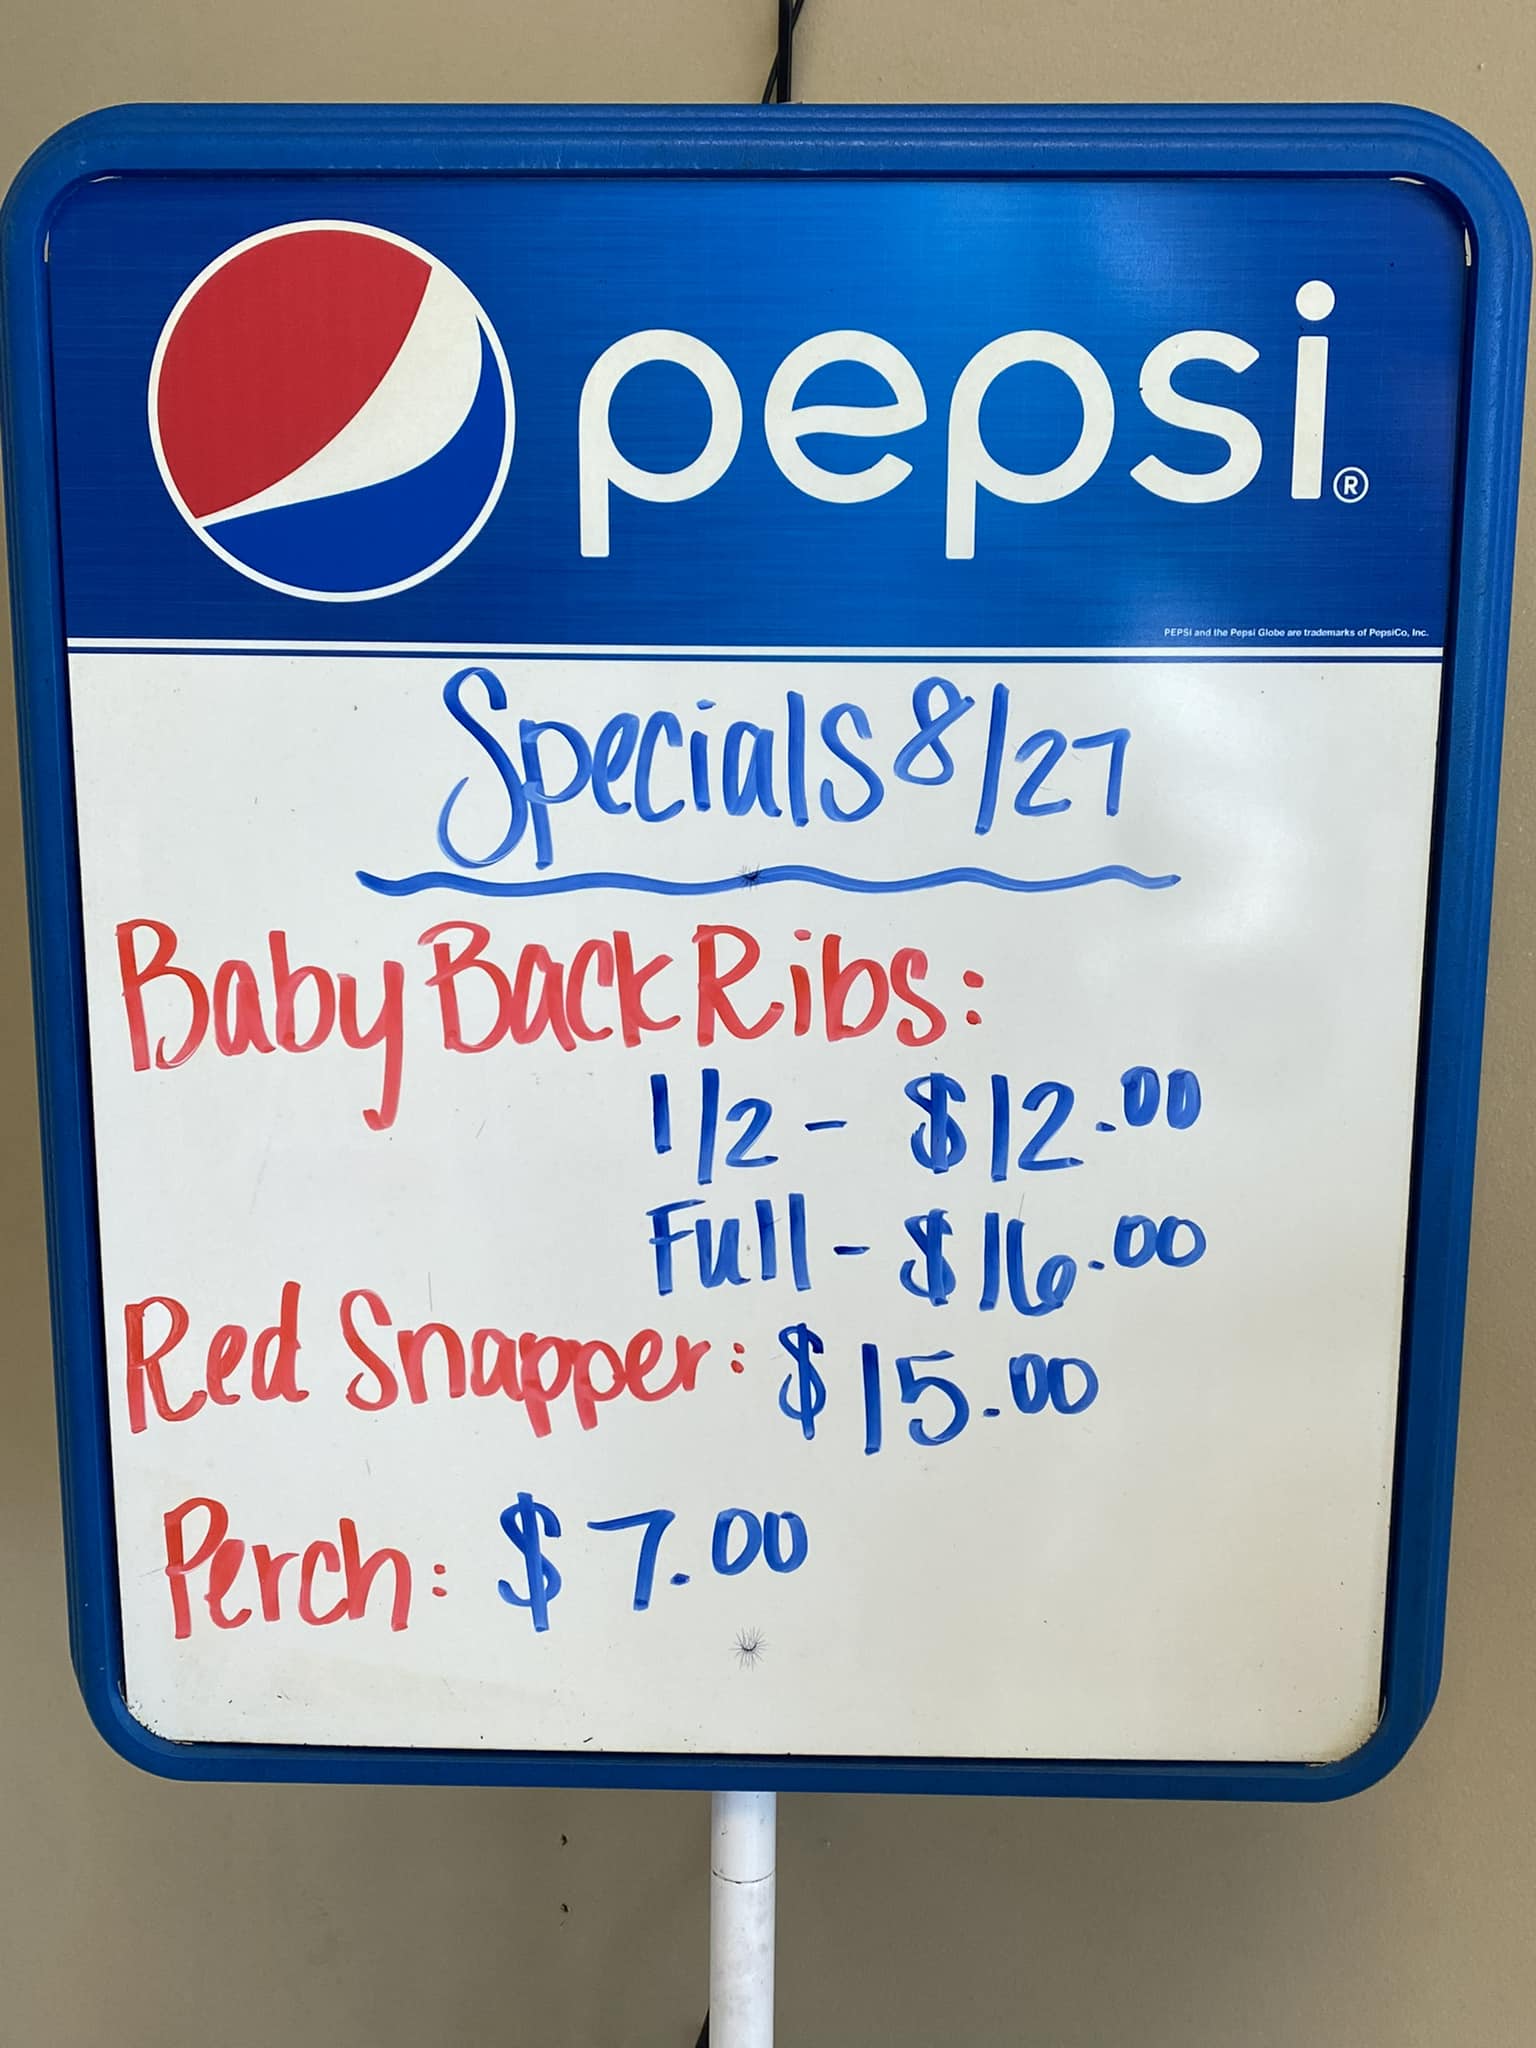 pepsi®
PEPSI and the Pepsi Globe are trademarks of PepsiCo, Inc.
Specials 8/27
Baby Back Ribs:
1/2 - $12.00
Full - $16.00
Red Snapper: $15.00
Perch: $7.00